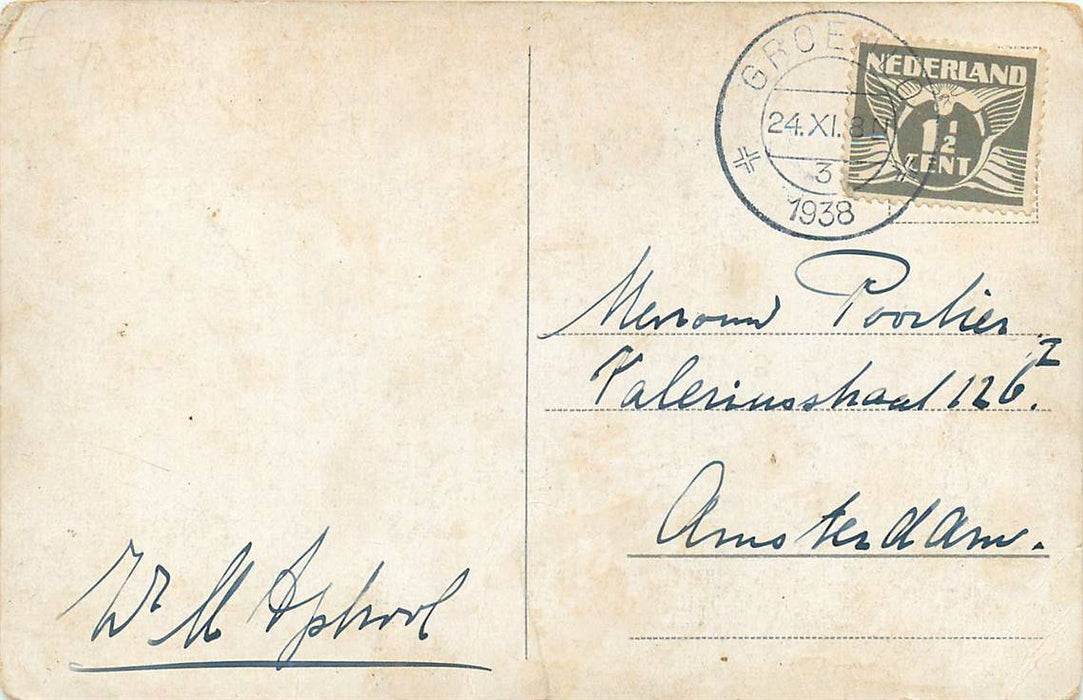 24.XI. 8N
3
1938
NEDERLAND
1½
CENT
Mevrouw Poortier
Valeriusstraat 126 I.
Amsterdam.